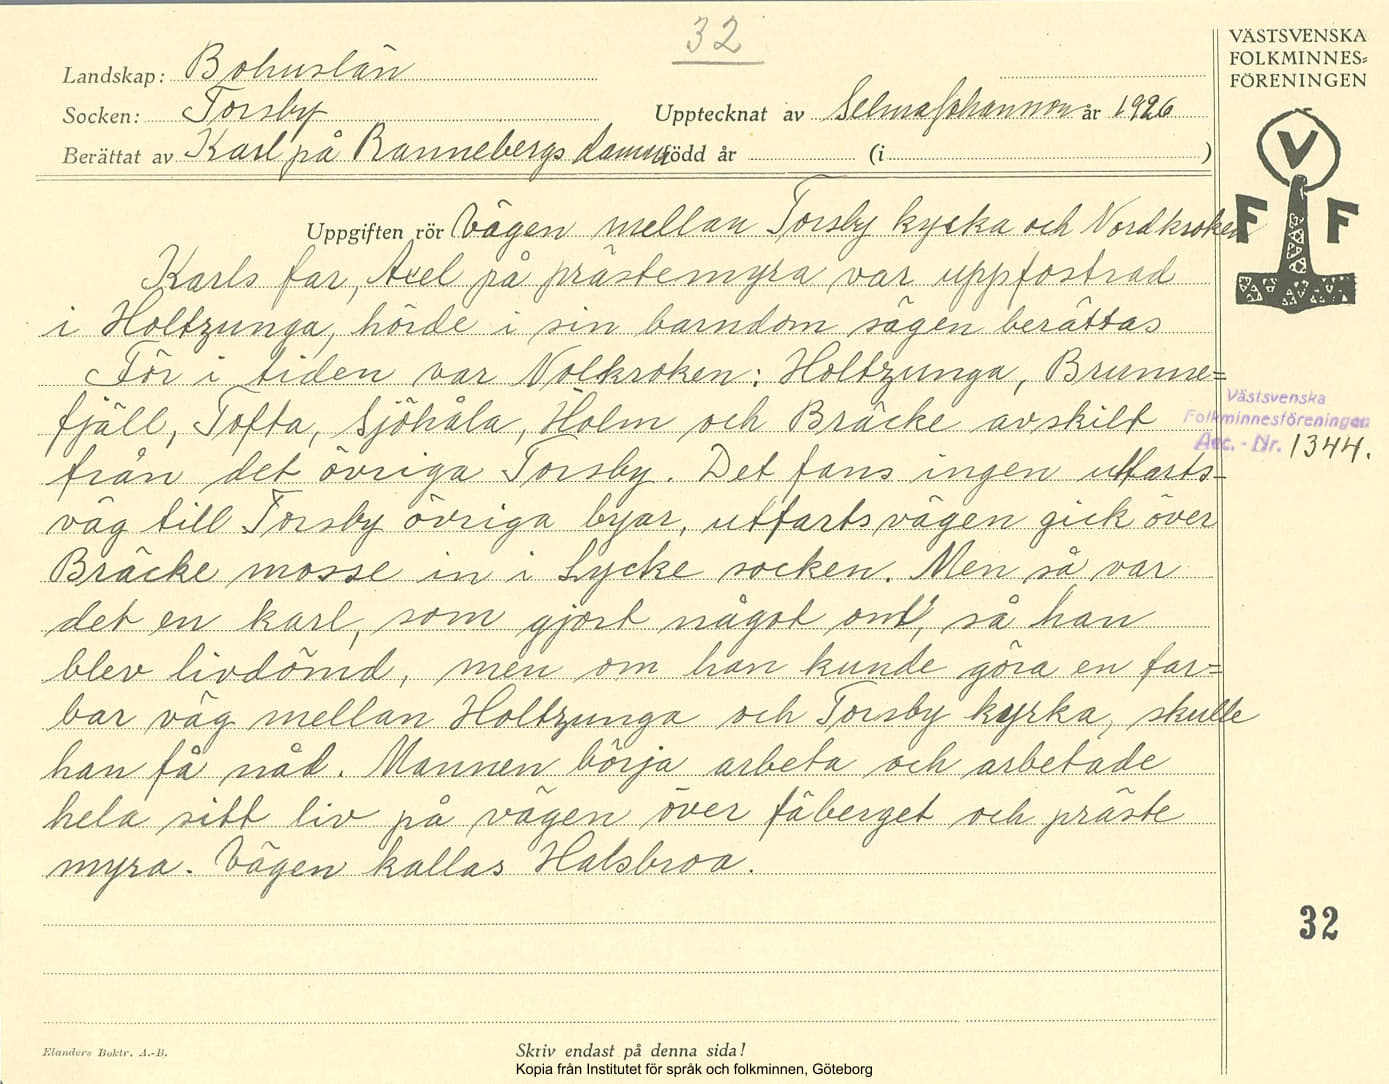 32
Landskap: Bohuslän
Socken: Torsby
Upptecknat av Selma Johansson år 1926
Berättat av Karl på Rannebergs damm född år (i )
VÄSTSVENSKA
FOLKMINNES=
FÖRENINGEN
V
F F
Uppgiften rör Vägen mellan Torsby kyrka och Nordkroken
Karls far, Axel på prästemyra var uppfostrad
i Holtzunga, hörde i sin barndom sägen berättas
För i tiden var Nolkroken: Holtzunga, Brunne=
fjäll, Tofta, Sjöhåla, Holm och Bräcke avskilt
från det övriga Torsby. Det fans ingen utfarts-
väg till Torsby övriga byar, utfartsvägen gick över
Bräcke mosse in i Lycke socken. Men så var
det en karl, som gjort något ont, så han
blev livdömd, men om han kunde göra en far=
bar väg mellan Holtzunga och Torsby kyrka, skulle
han få nåd. Mannen börja arbeta och arbetade
hela sitt liv på vägen över fäberget och präste
myra. Vägen kallas Halsbroa.
Västsvenska
Folkminnesföreningen
Acc. - Nr. 1344.
32
Elanders Boktr. A.-B.
Skriv endast på denna sida!
Kopia från Institutet för språk och folkminnen, Göteborg